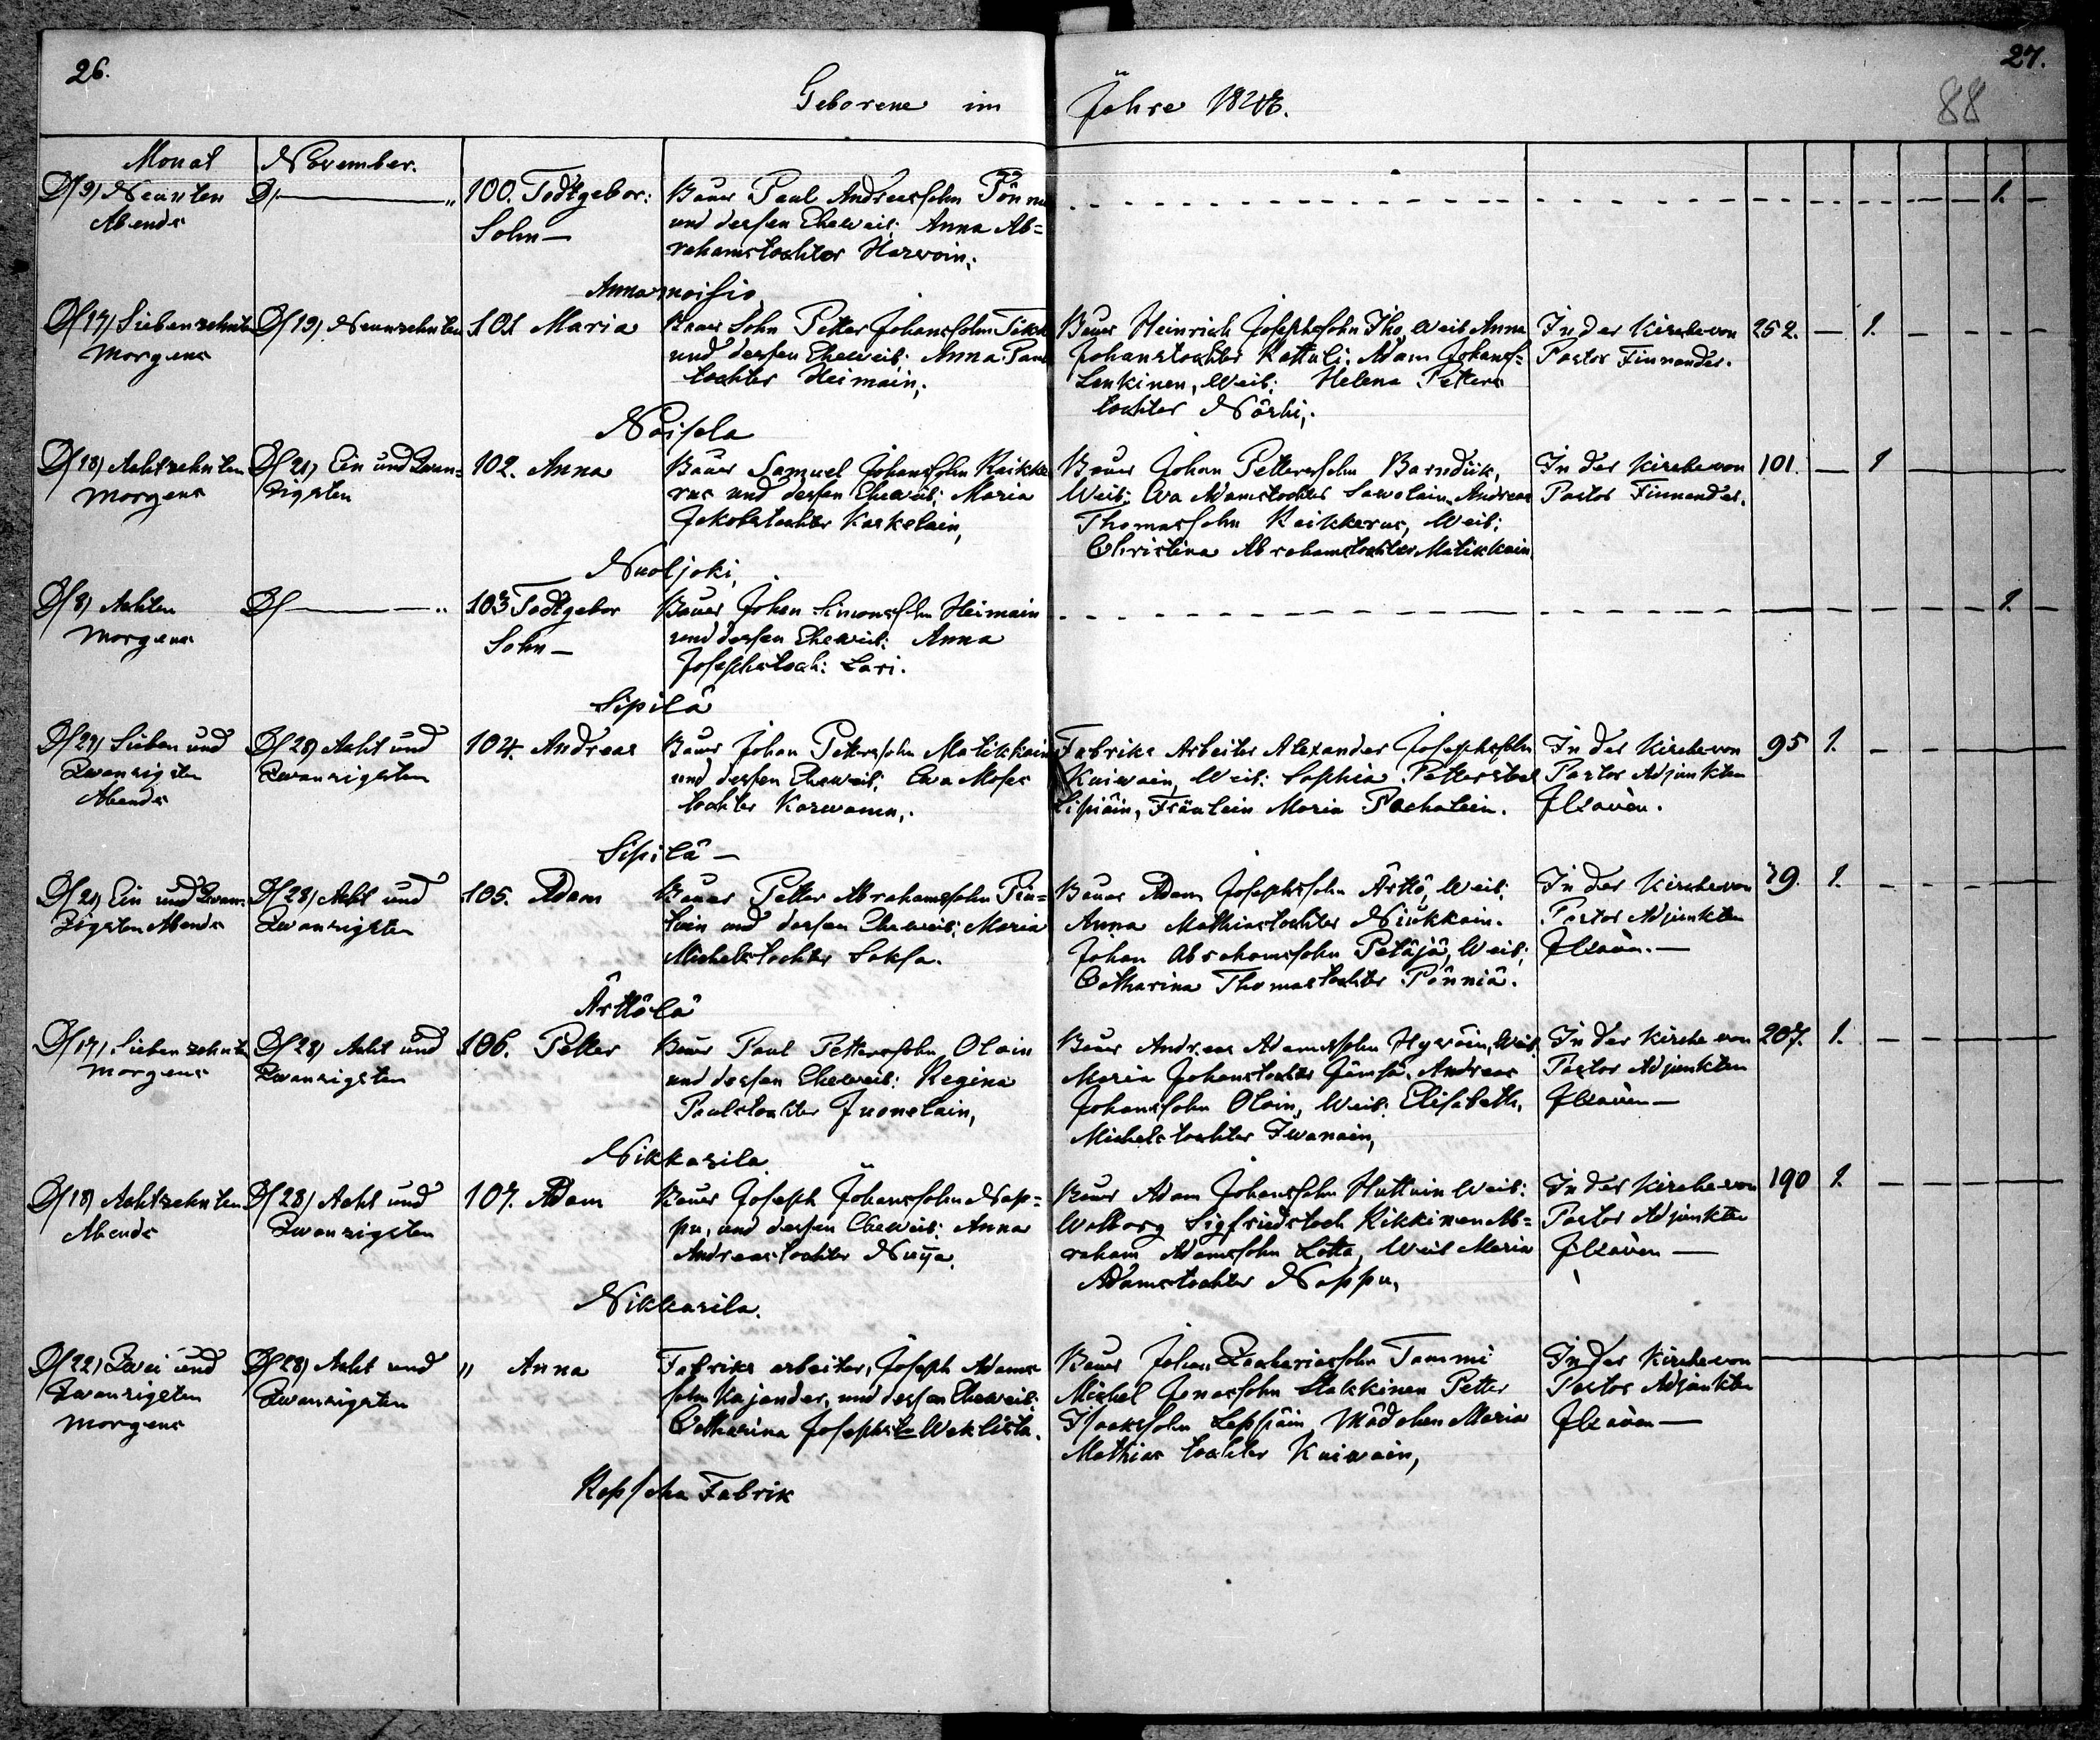 26.
27.
88
Geborene im Jahre 1846.
Monat November.
D/9) Neunten
Abends
D/ — "
100. Todtgebor:
Sohn —
Bauer Paul Andreassohn Pönni
und dessen Eheweib: Anna Ab=
rahamstochter Harwoin,
1.
Annamoisio
D/17) Siebenzehnten
Morgens
D/19) Neunzehnten
101 Maria
Bauer Sohn Petter Johanssohn Tikk
und dessen Eheweib: Anna Pauls
tochter Heimain,
Bauer Heinrich Josephssohn Iho, Weib Anna
Johanstochter Kattuli. Adam Johans=
Lenkinen, Weib: Helena Petters
tochter Närhi,
In der Kirche von
Pastor Finnander.
252. — 1. — — — —
Noisola
D/18) Achtzehnten
Morgens
D/21) Ein und Zwan=
zigsten
102. Anna
Bauer Samuel Johanssohn Raikke
rus und dessen Eheweib: Maria
Jakobstochter Karkelain,
Bauer Johan Petterssohn Barndük,
Weib: Eva Adamstochter Sawolain. Andreas
Thomassohn Reikkerus, Weib:
Christina Abrahamstochter Matikkain
In der Kirche von
Pastor Finnander.
101. — 1
Nuoljoki,
D/8) Achten
Morgens
D/ — "
103 Todtgebor
Sohn —
Bauer Johan Simonssohn Heimain
und dessen Eheweib: Anna
Josephstoch: Lari.
1.
Sipilä
D/27) Sieben und
Zwanzigsten
Abends
D/28) Acht und
Zwanzigsten
104. Andreas
Bauer Johan Petterssohn Matikkain
und dessen Eheweib: Ewa Moses
tochter Karwanen,
Fabriks Arbeiter Alexander Josephssohn
Kuiwain, Weib: Sophia Petterstoch
Lipiäin, Fräulein Maria Pachalein.
In der Kirche von
Pastor Adjunkten
Flraven.
95 1. — — — — —
Sipilä —
D/21) Ein und Zwan=
zigsten Abends
D/28) Acht und
Zwanzigsten
105. Adam
Bauer Petter Abrahamssohn Piu=
lain und dessen Eheweib: Maria
Michelstochter Soksa.
Bauer Adam Josephssohn Ärttö, Weib:
Anna Mathiastochter Niukkain.
Johan Abrahamssohn Petäjä, Weib:
Catharina Thomastochter Pönniä.
In der Kirche von
Pastor Adjunkten
Flraven. —
79. 1. — — — — —
Ärttölä
D/17) Siebenzehnten
Morgens
D/28) Acht und
Zwanzigsten
106. Petter
Bauer Paul Petterssohn Olain
und dessen Eheweib: Regina
Paulstochter Juonelain,
Bauer Andreas Adamssohn Hyväin, Weib
Maria Johanstochter Jämsä. Andreas
Johanssohn Olain, Weib: Elisabeth,
Michelstochter Iwanain,
In der Kirche von
Pastor Adjunkten
Flraven —
207. 1. — — — — —
Nikkarila
D/18) Achtzehnten
Abends
D/28) Acht und
Zwanzigsten
107. Adam
Bauer Joseph Johanssohn Nap=
pu, und dessen Eheweib: Anna
Andreastochter Nuija.
Bauer Adam Johanssohn Huttuin Weib:
Walborg Sigfriedstoch Kikkinen Ab=
raham Adamssohn Lotta, Weib Maria
Adamstochter Nappu,
In der Kirche von
Pastor Adjunkten
Flraven —
190 1. — — — — —
Nikkarila.
D/22) Zwei und
Zwanzigsten
Morgens
D/28) Acht und
Zwanzigsten
" Anna
Fabriks arbeiter, Joseph Adams
sohn Kajander, und dessen Eheweib:
Catharina Josephst Weklista.
Bauer Johan Zachariassohn Tommi
Michel Jonassohn Stakkinen Petter
Isaakssohn Leppäin, Mädchen Maria
Mathias tochter Kuiwain,
In der Kirche von
Pastor Adjunkten
Flraven —
Ropscha Fabrik